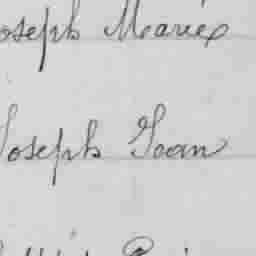 Joseph Marie
Joseph Jean